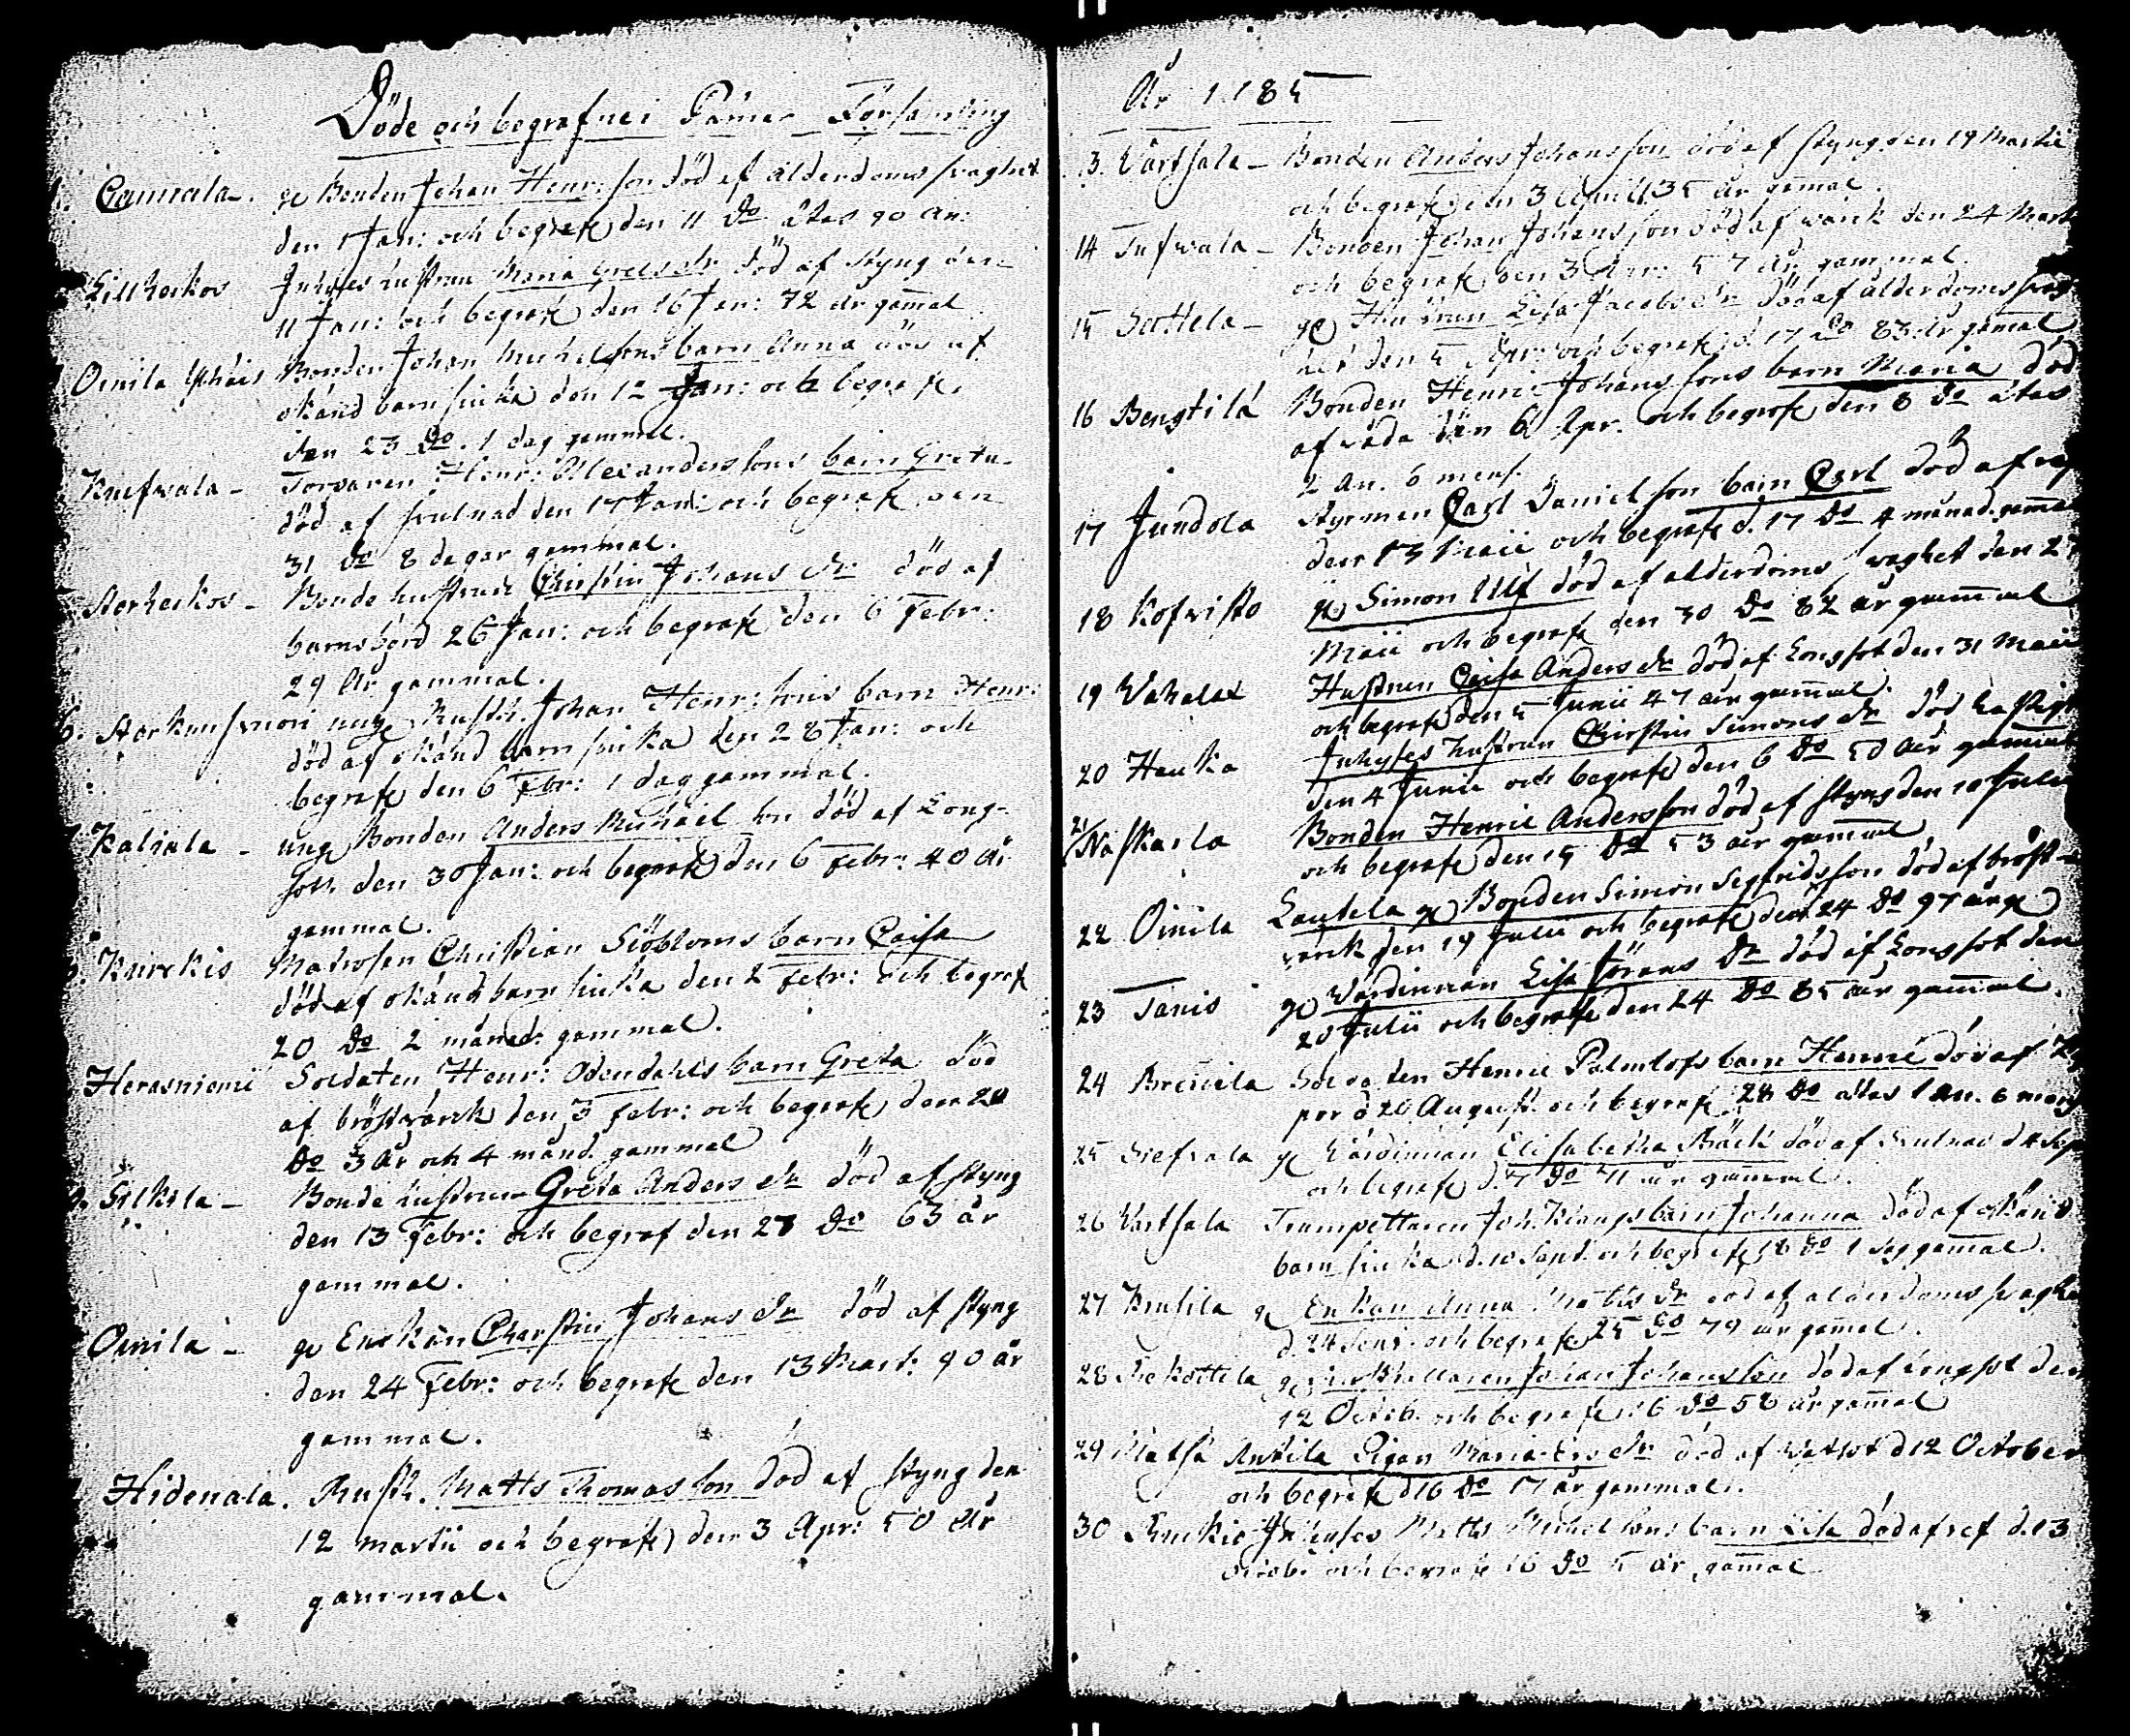 Döde och begrafne i Pämar Församling
1. Gammala. ge Bonden Johan Henr: son död af ålderdoms svaghet
den 1 Jan: och begrafe den 11 do ätas 90 an:
Lillheikos Inhyses hustrun Maria Grels dr död af styng den
11 Jan: och begrafe den 16 Jan: 72 år gammal
Oinila Bonden Johan Michelsons barn Anna död af
okänd barnsiuka den 12 Jan: och begrafe
den 23 do. 1 dag gammal.
Knifwala - Torparen Henr: Alexanderssons barn Greta
död af svulnad den 17 Jan: och begrafe den
31 do 8 dagar gammal.
Storheikos - Bonde hustrun Christin Johans dr död af
barnsbörd 26 Jan: och begrafe den 6 Febr:
29 år gammal.
6. Johan Henr: sons barn Henr:
död af okänd barnsiuka den 28 Jan: och
begrafe den 6 Febr: 1 dag gammal.
7. Kaliala - unge Bonden Anders Michael son död af Long-
sot den 30 Jan: och begrafe den 6 Febr: 40 år
gammal.
Knirckis Matrosen Christian Siöbloms barn Caisa
död af okänd barnsiuka den 2 Febr: och begraf
20 do 2 månad: gammal.
Herasniemi Soldaten Henr: Odendahls barn Greta död
af bröstwärck den 3 Febr: och begrafe den 20
do 3 år och 4 månd. gammal
Silkila - Bonde hustrun Greta Anders dr död af styng
den 13 Febr: och begraf den 28 do 63 år
gammal.
Oinila - ge Enckan Christin Johans dr död af styng
den 24 Febr: och begrafe den 13 Mart: 90 år
gammal.
Hidenala. Rusth. Matts Thomas son död af styng den
12 martii och begrafe den 3 Apr: 50 år
gammal.
År 1785
3. Wartsala - Bonden Anders Johansson död af styng den 19 Martii
och begrafe den 3 April 35 år gammal.
14 Tufwala - Bonden Johan Johansson död af wärck den 24 Mart
och begrafe den 3 Apr: 57 år gammal.
15 Sottela - ge Hustrun Lisa Jacobs dr död af ålderdoms svag
het den 5 Apr: och begrafe d. 17 do 83 år gamal
16 Bengtilä Bonden Henric Johanssons barn Maria död
af våda den 6 Apr. och begrafe den 8 do ätas
2 an. 6 mens.
17 Jundola Styrman Carl Danielson barn Carl död af
den 13 Maii och begrafe d. 17 do 4 månad. gamma
18 Kofwisto ge Simon Ulf död af ålderdoms swaghet den 2
Maii och begrafe den 30 do 82 år gammal
19 Wahalax Hustrun Caisa Anders dr död af Longsot den 31 Maii
och begrafe den 5 Junii 47 år gammal.
20 Hauka Inhyses hustrun Christin Simons dr död hastigt
den 4 Junii och begrafe den 6 do 50 år gammal
21 Naskarla Bonden Henric Andersson död af styng den 10 Julii
och begrafe den 15 do 53 år gammal
22 Oinila Lautela ge Bonden Simon Segfridsson död af bröst-
wärck den 19 Julii och begrafe den 24 do 97 år ge
23 Tanis ge Wärdinnan Lisa Jörans dr död af Longsot den
20 Julii och begrafe den 24 do 85 år gammal.
24 Breitila Soldaten Henric Palmlofs barn Henric död af
por d 20 August. och begrafe 28 do ätas 1 an. 6 mens
25 Siefsala ge Wärdinnan Elisabetha Bäck död af svulnad d 4 Sep
och begrafe d. 7 do 71 år gammal.
26 Wartsala Trumpettaren Joh. Klangs barn Johanna död af okänd
barnsiuka d. 10 Sept. och begrafe 18 do 1 dag gamal.
27 Krusila ge Enkan Anna Matts dr död af ålderdoms svaghe
d. 24 Sept. och begrafe 25 do 79 år gamal.
28 Johan Johansson död af Longsot den
12 Octob. och begrafe 16 do 58 år gamal
29 Anttila Pigan Maria Ers dr död af Watsot d 12 October
och begrafe d 16 do 17 år gammal.
30 Inhyses Matts Michelsons barn Lisa död af ref d. 13
Octob: och begrafe 16 do 5 år gamal